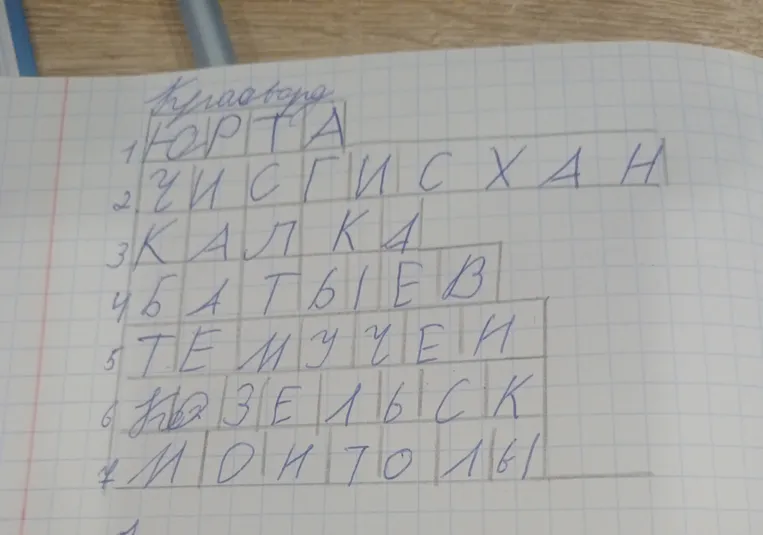 Кроссворд
1 ЮРТА
2 ЧИСГИСХАН
3 КАЛКА
4 БАТЫЕВ
5 ТЕМУЧЕН
6 КОЗЕЛЬСК
7 МОНТОЛЫ